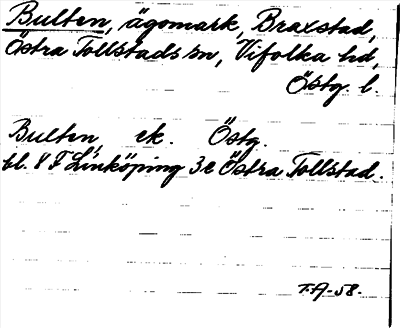 Bulten, ägomark, Braxstad,
Östra Tollstads sn, Vifolka hd,
Östg. l.
Bulten, ek. Östg.
bl. 8 F Linköping 3e Östra Tollstad.
T.A-58.